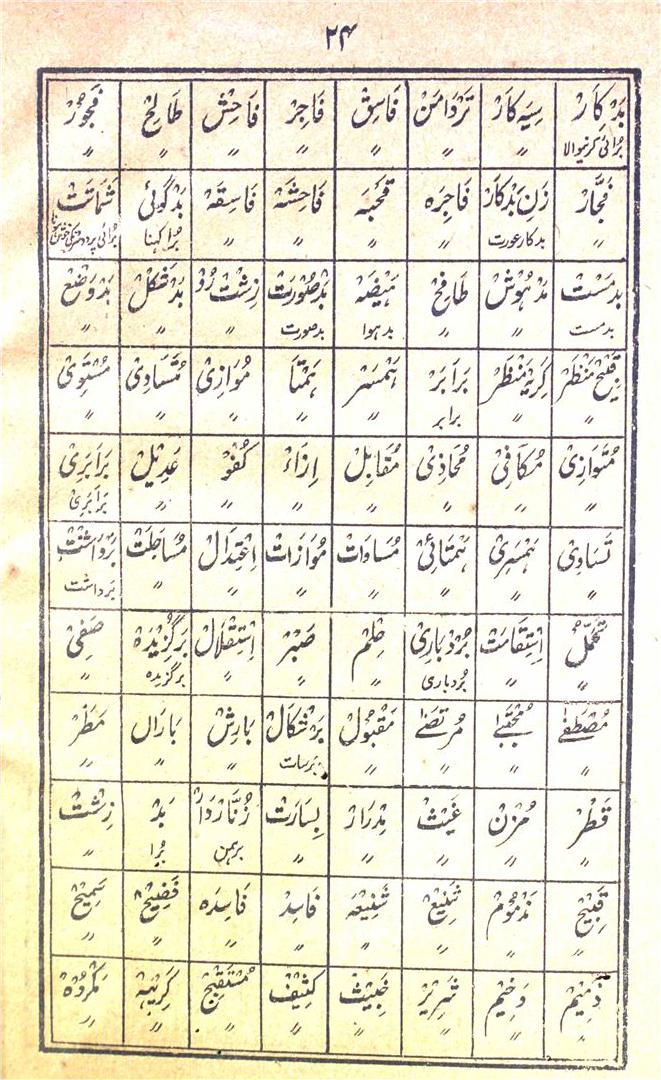 ۲۴
بَدْکَارْ سِیَہ کَارْ تَرْدَامَنْ فَاسِقْ فَاجِرْ فَاحِشْ طَالِحْ فُجُورْ
برائی کرنیوالا 〃 〃 〃 〃 〃 〃 〃
فُجَّارْ زَنِ بَدْکَارْ فَاجِرَہ قَحْبَہ فَاحِشَہ فَاسِقَہ بَدْگوئی شَمَاتَتْ
〃 بدکار عورت 〃 〃 〃 〃 برا کہنا
بَدْمَسْتْ مَدْہُوشْ طَافِحْ ہَیْضَہ بَدْصُورَتْ زِشْتْ رُوْ بَدْشَکْلْ بَدْوَضْع
بدمست 〃 〃 بدہوا بدصورت 〃 〃 〃
قَبِیْح مَنْظَرْ کَرِیْہ مَنْظَرْ بَرَابَرْ ہَمْسَرْ ہَمْتَا مُوَازِیْ مُتَسَاوِیْ مُسْتَوِیْ
〃 〃 برابر 〃 〃 〃 〃 〃
مُتَوَازِیْ مُکَافِیْ مُحَاذِیْ مُقَابِلْ اِزَاءْ کُفْوْ عَدِیْلْ بَرَابَرِیْ
〃 〃 〃 〃 〃 〃 〃 برابری
تَسَاوِیْ ہَمْسَرِیْ ہَمْتَائِیْ مُسَاوَاتْ مُوَازَاتْ اِعْتِدَالْ مُسَاجَلَتْ بَرْدَاشْتْ
〃 〃 〃 〃 〃 〃 〃 برداشت
تَحَمُّلْ اِسْتِقَامَتْ بُرْدبَارِیْ حِلْم صَبْرْ اِسْتِقْلَالْ بَرْگُزِیْدَہ صَفِیْ
〃 〃 بردباری 〃 〃 〃 برگزیدہ 〃
مُصْطَفٰے مُجْتَبٰے مُرْتَضٰے مَقْبُولْ بَرْشْکَالْ بَارِشْ بَارَاں مَطَرْ
〃 〃 〃 〃 برسات 〃 〃 〃
قَطْرْ مُزْنْ غَیْثْ مِدْرَارْ بِسَارَتْ زُنَّارْدَارْ بَدْ زِشْتْ
〃 〃 〃 〃 〃 برہمن برا 〃
قَبِیْحْ مَذْمُوْمْ شَنِیْعْ شَنِیْعَہ فَاسِدْ فَاسِدَہ فَضِیْحْ سَمِیْجْ
〃 〃 〃 〃 〃 〃 〃 〃
ذَمِیْمْ وَخِیْمْ شَرِیْرْ خَبِیْثْ کَثِیْفْ مُسْتَقْبِحْ کَرِیْہَہ مَکْرُوْہْ
〃 〃 〃 〃 〃 〃 〃 〃